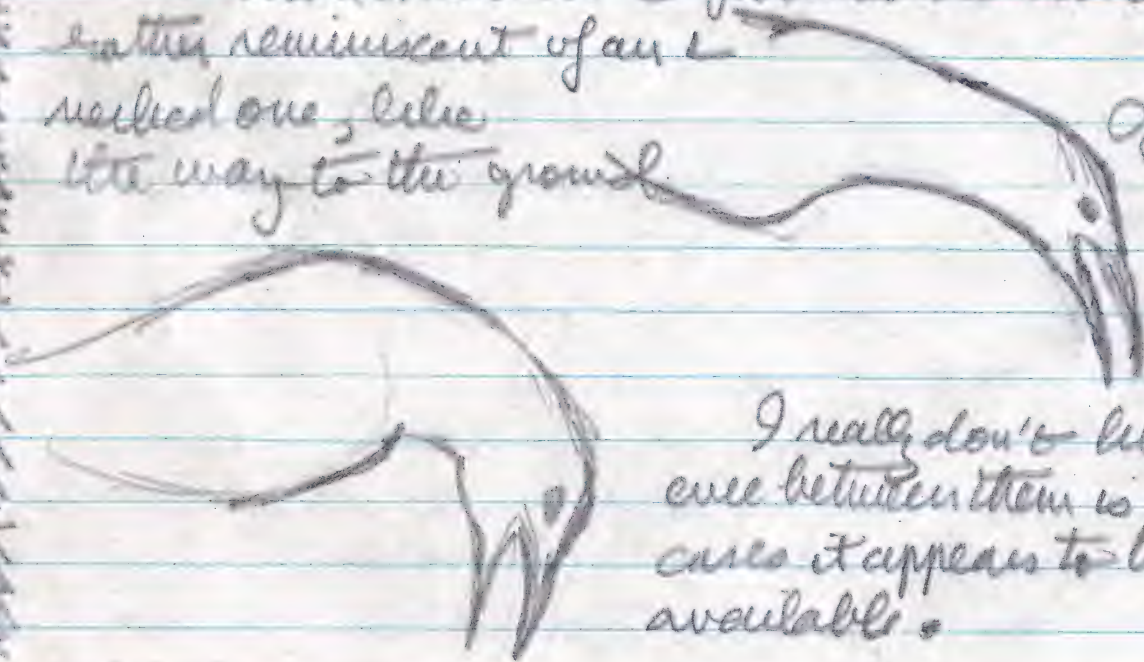 rather reminiscent of an
necked one, like
the way to the ground
I really don't
ence between them is
cases it appears to
available.